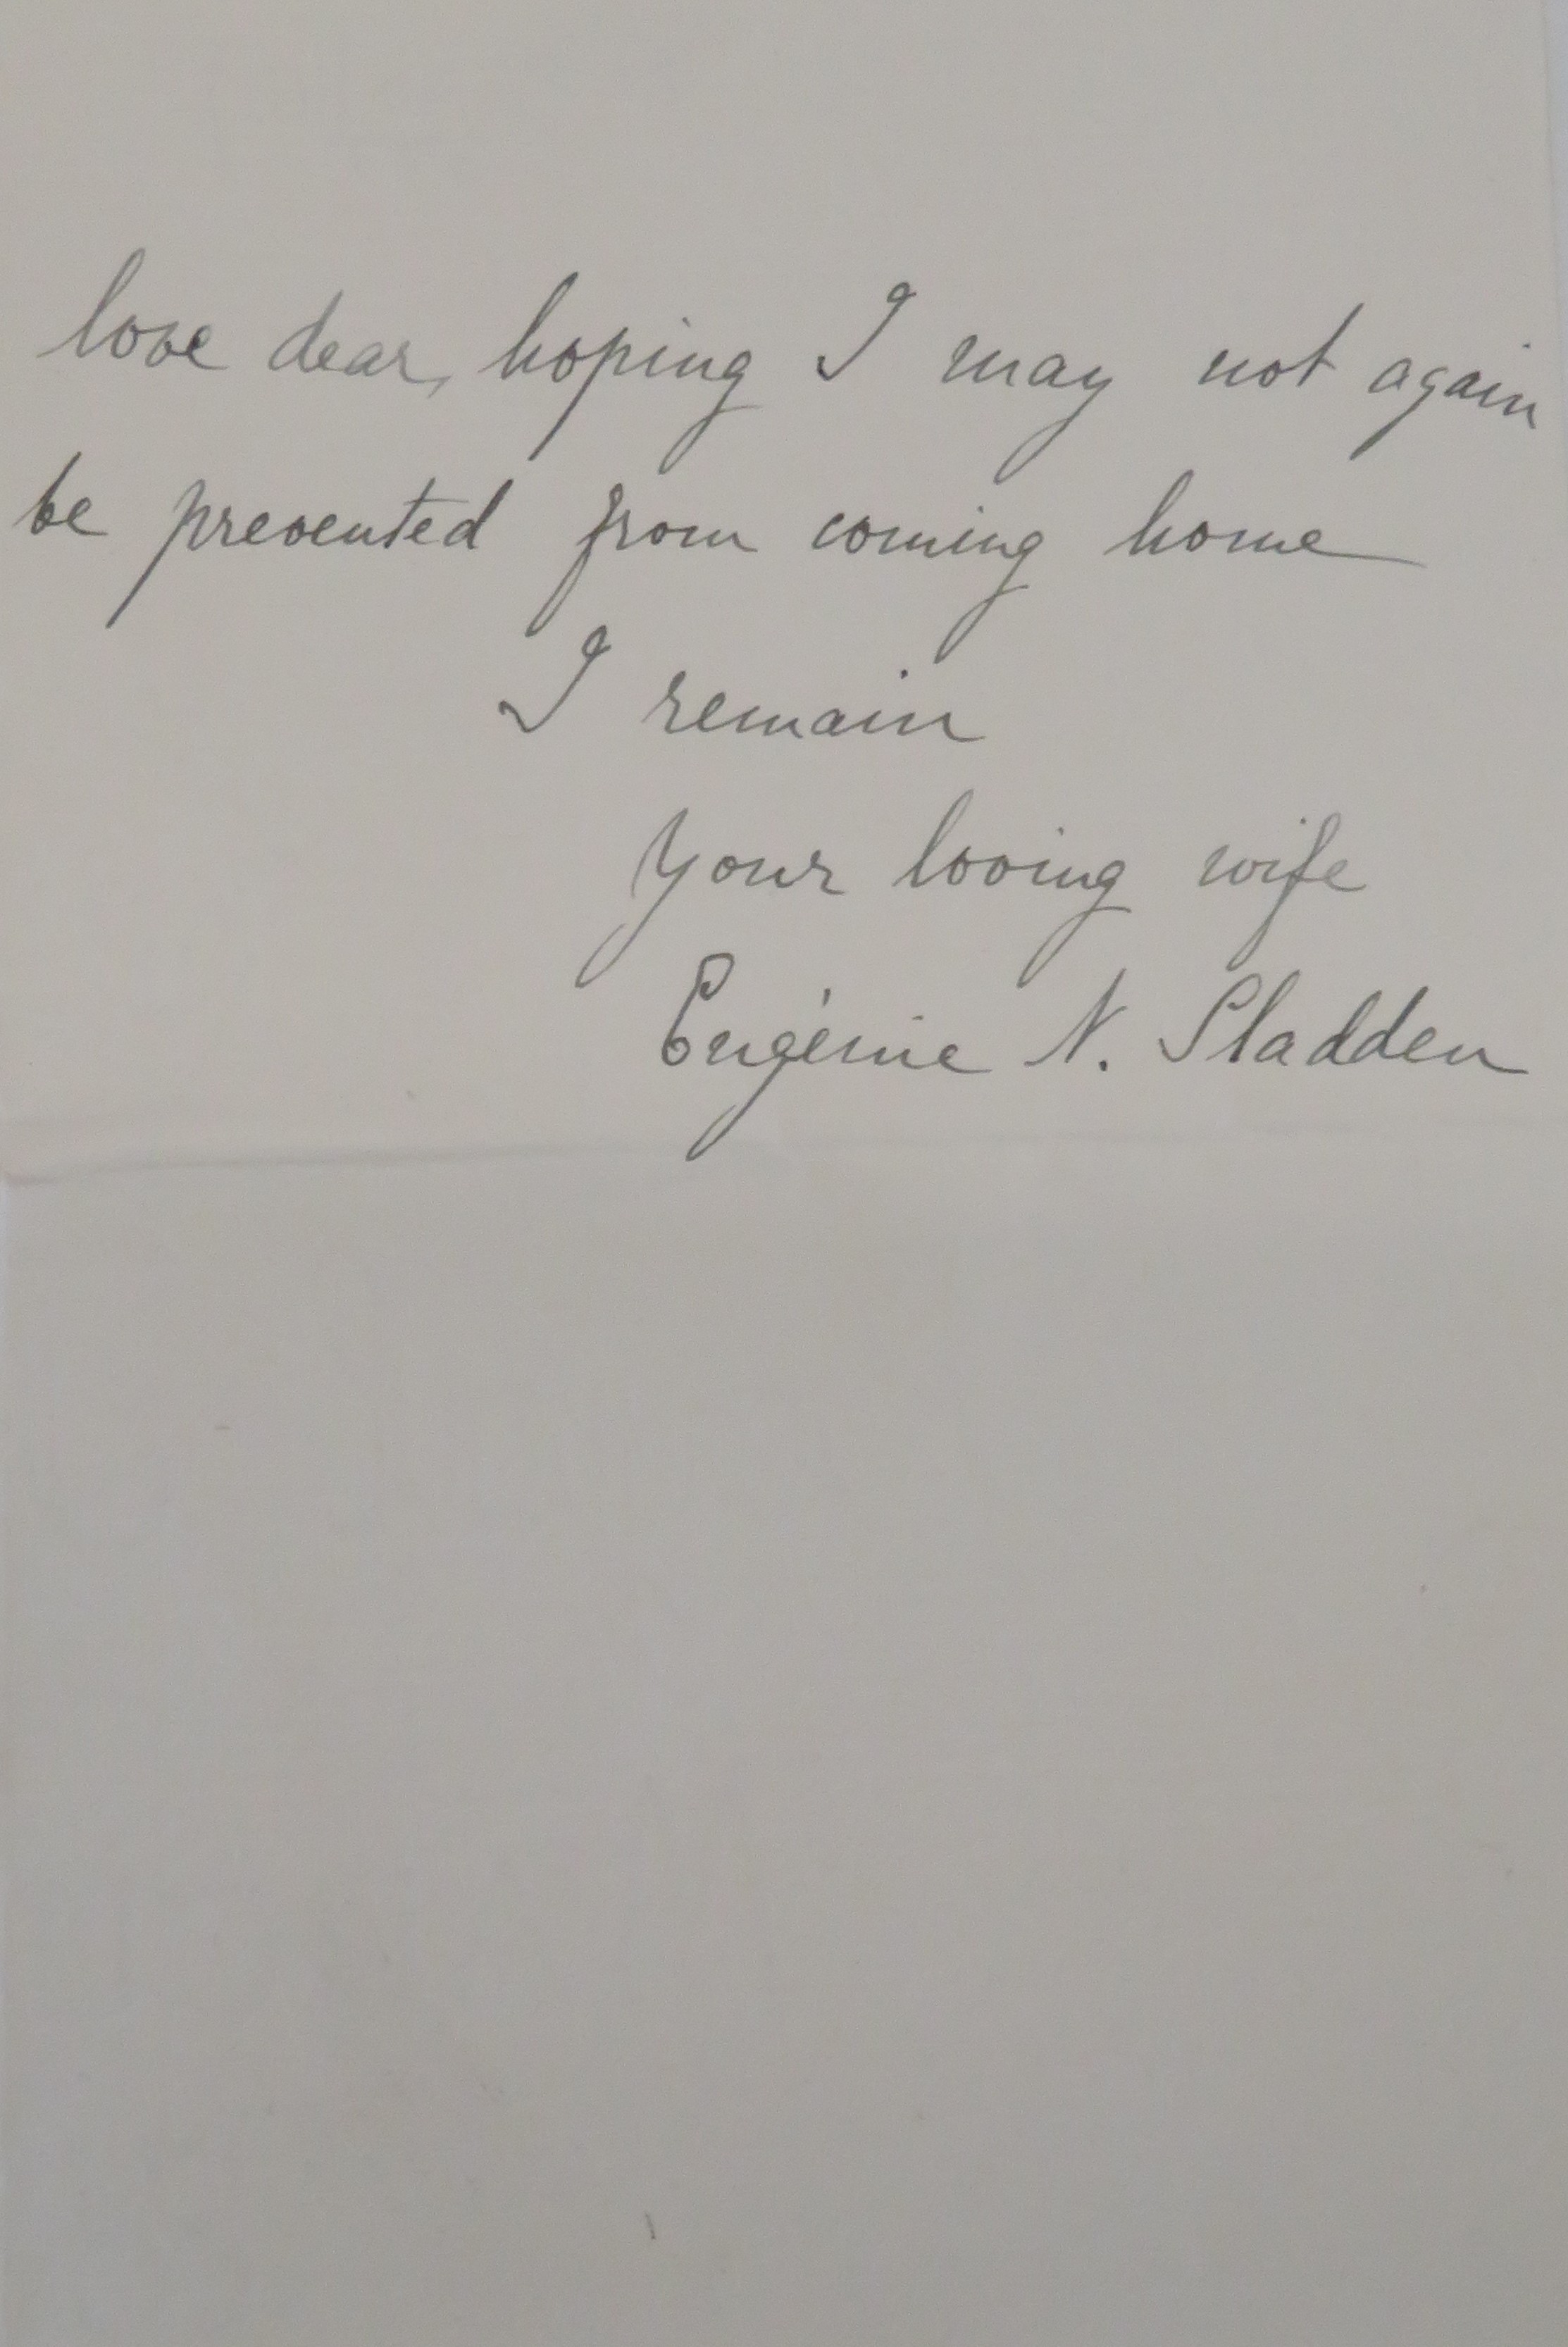 love dear, hoping I may not again
be prevented from coming home
I remain
Your loving wife
Eugénie N. Sladden